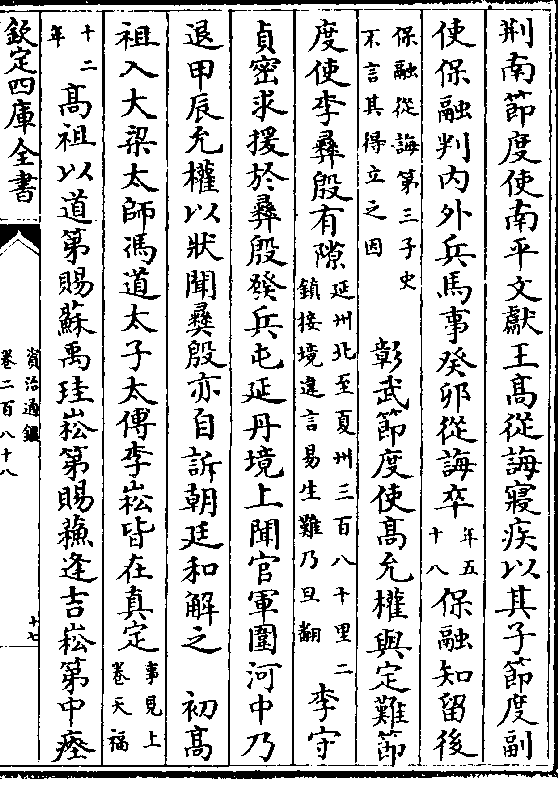 荆南節度使南平文獻王髙從誨寝疾以其子節度副
使保融判内外兵馬事癸卯從誨卒年五十八保融知留後
保融從誨第三子史不言其得立之因　彰武節度使髙允權與定難節
度使李彛殷有隙延州北至夏州三百八十里二鎮接境違言易生難乃旦翻李守
貞密求援於彛殷發兵屯延丹境上聞官軍圍河中乃
退甲辰允權以狀聞彛殷亦自訴朝廷和解之　初髙
祖入大梁太師馮道太子太傅李崧皆在真定事見上卷天福
十二年髙祖以道第賜蘇禹珪崧第賜蘇逢吉崧第中瘞
欽定四庫全書
資治通鑑
卷二百八十八
十七